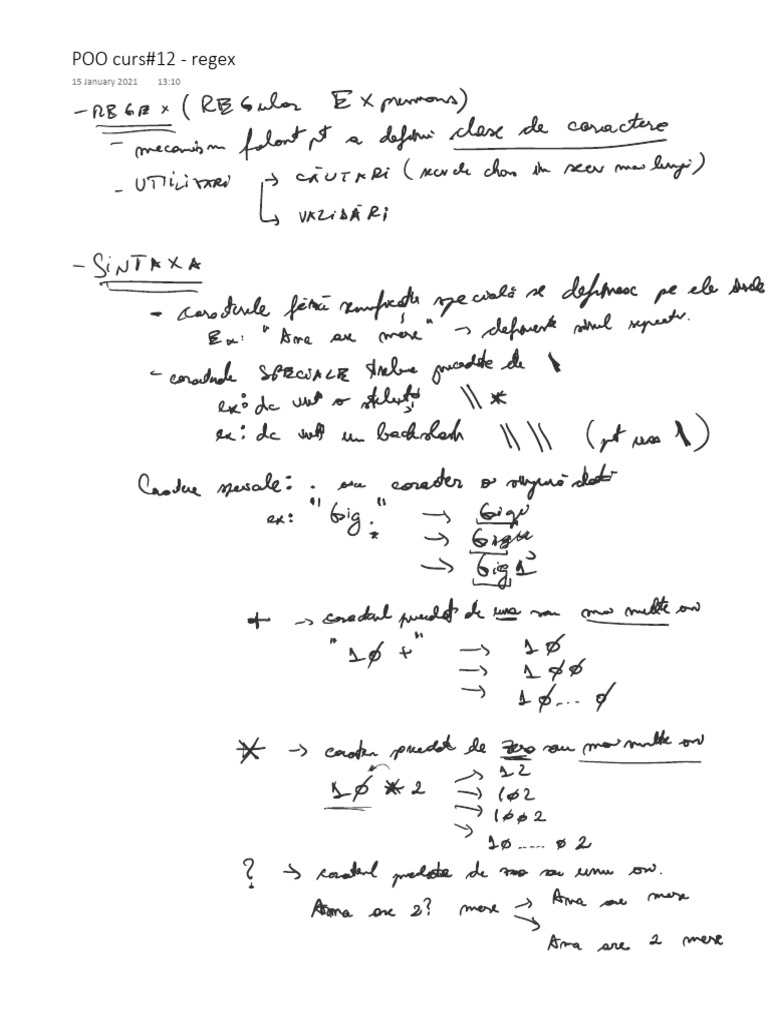 POO curs#12 - regex
15 January 2021 13:10
- REGEX (REGular EXpressions)
- mecanism folosit pt a defini clase de caractere
- UTILIZARI → CĂUTARI ( în mai lungi)
→ VALIDĂRI
- SINTAXA
- caracterele fără semnificație specială se definesc pe ele însele
Ex: "Ana are mere" → definește șirul respectiv.
- caracterele SPECIALE trebuie precedate de \
ex: dc vrem o steluță \\ *
ex: dc vrem un backslash \\ \\ (pt un \)
Caractere speciale: . caracter o singură dată
ex: "Gig." → Gigi
→ Gigu
→ Gig1
+ → caracterul precedent de una sau mai multe ori
"1Ø+" → 1Ø
→ 1ØØ
→ 1Ø... Ø
* → caracter precedent de zero sau mai multe ori
1Ø*2 → 12
→ 1Ø2
→ 1ØØ2
→ 1Ø..... Ø2
? → caracterul precedent de zero sau una ori.
Ana are 2? mere → Ana are mere
→ Ana are 2 mere